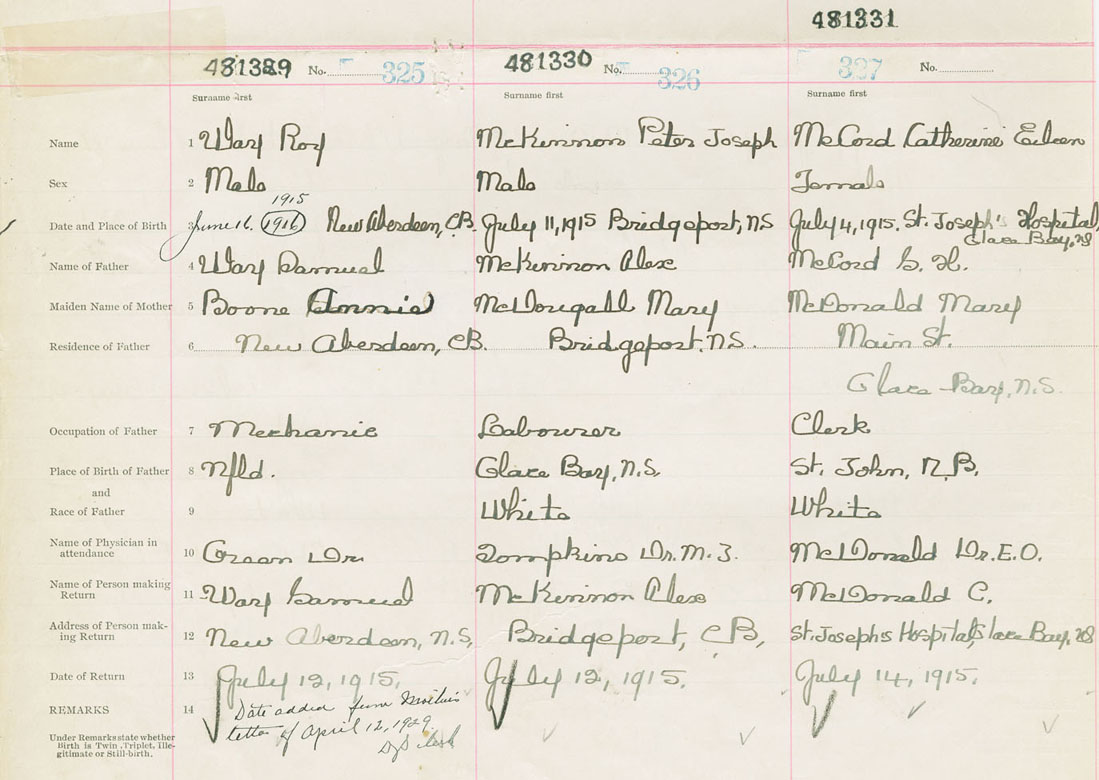 481331
481329 No. 325 481330 No. 326 327 No.
Surname first Surname first Surname first
Name 1 Way Roy McKinnon Peter Joseph McCord Catherine Eileen
Sex 2 Male Male Female
1915
Date and Place of Birth 3 June 16. 1916 New Aberdeen, CB. July 11, 1915 Bridgeport, NS July 4, 1915. St. Joseph's Hospital,
Glace Bay, NS
Name of Father 4 Way Samuel McKinnon Alex McCord S. H.
Maiden Name of Mother 5 Boone Annie McDougall Mary McDonald Mary
Residence of Father 6 New Aberdeen, CB. Bridgeport. N.S. Main St.
Glace Bay, N.S.
Occupation of Father 7 Mechanic Labourer Clerk
Place of Birth of Father 8 Nfld. Glace Bay, N.S. St. John, N.B.
and
Race of Father 9 White White
Name of Physician in
attendance 10 Green Dr. Tompkins Dr. M. J. McDonald Dr. E.O.
Name of Person making
Return 11 Way Samuel McKinnon Alex McDonald C.
Address of Person mak-
ing Return 12 New Aberdeen, N.S. Bridgeport, C.B, St. Joseph's Hospital, Glace Bay, NS
Date of Return 13 July 12, 1915. July 12, 1915. July 14, 1915.
REMARKS 14 Date added from Mother's
letter of April 12, 1929.
Under Remarks state whether
Birth is Twin, Triplet, Ille-
gitimate or Still-birth.